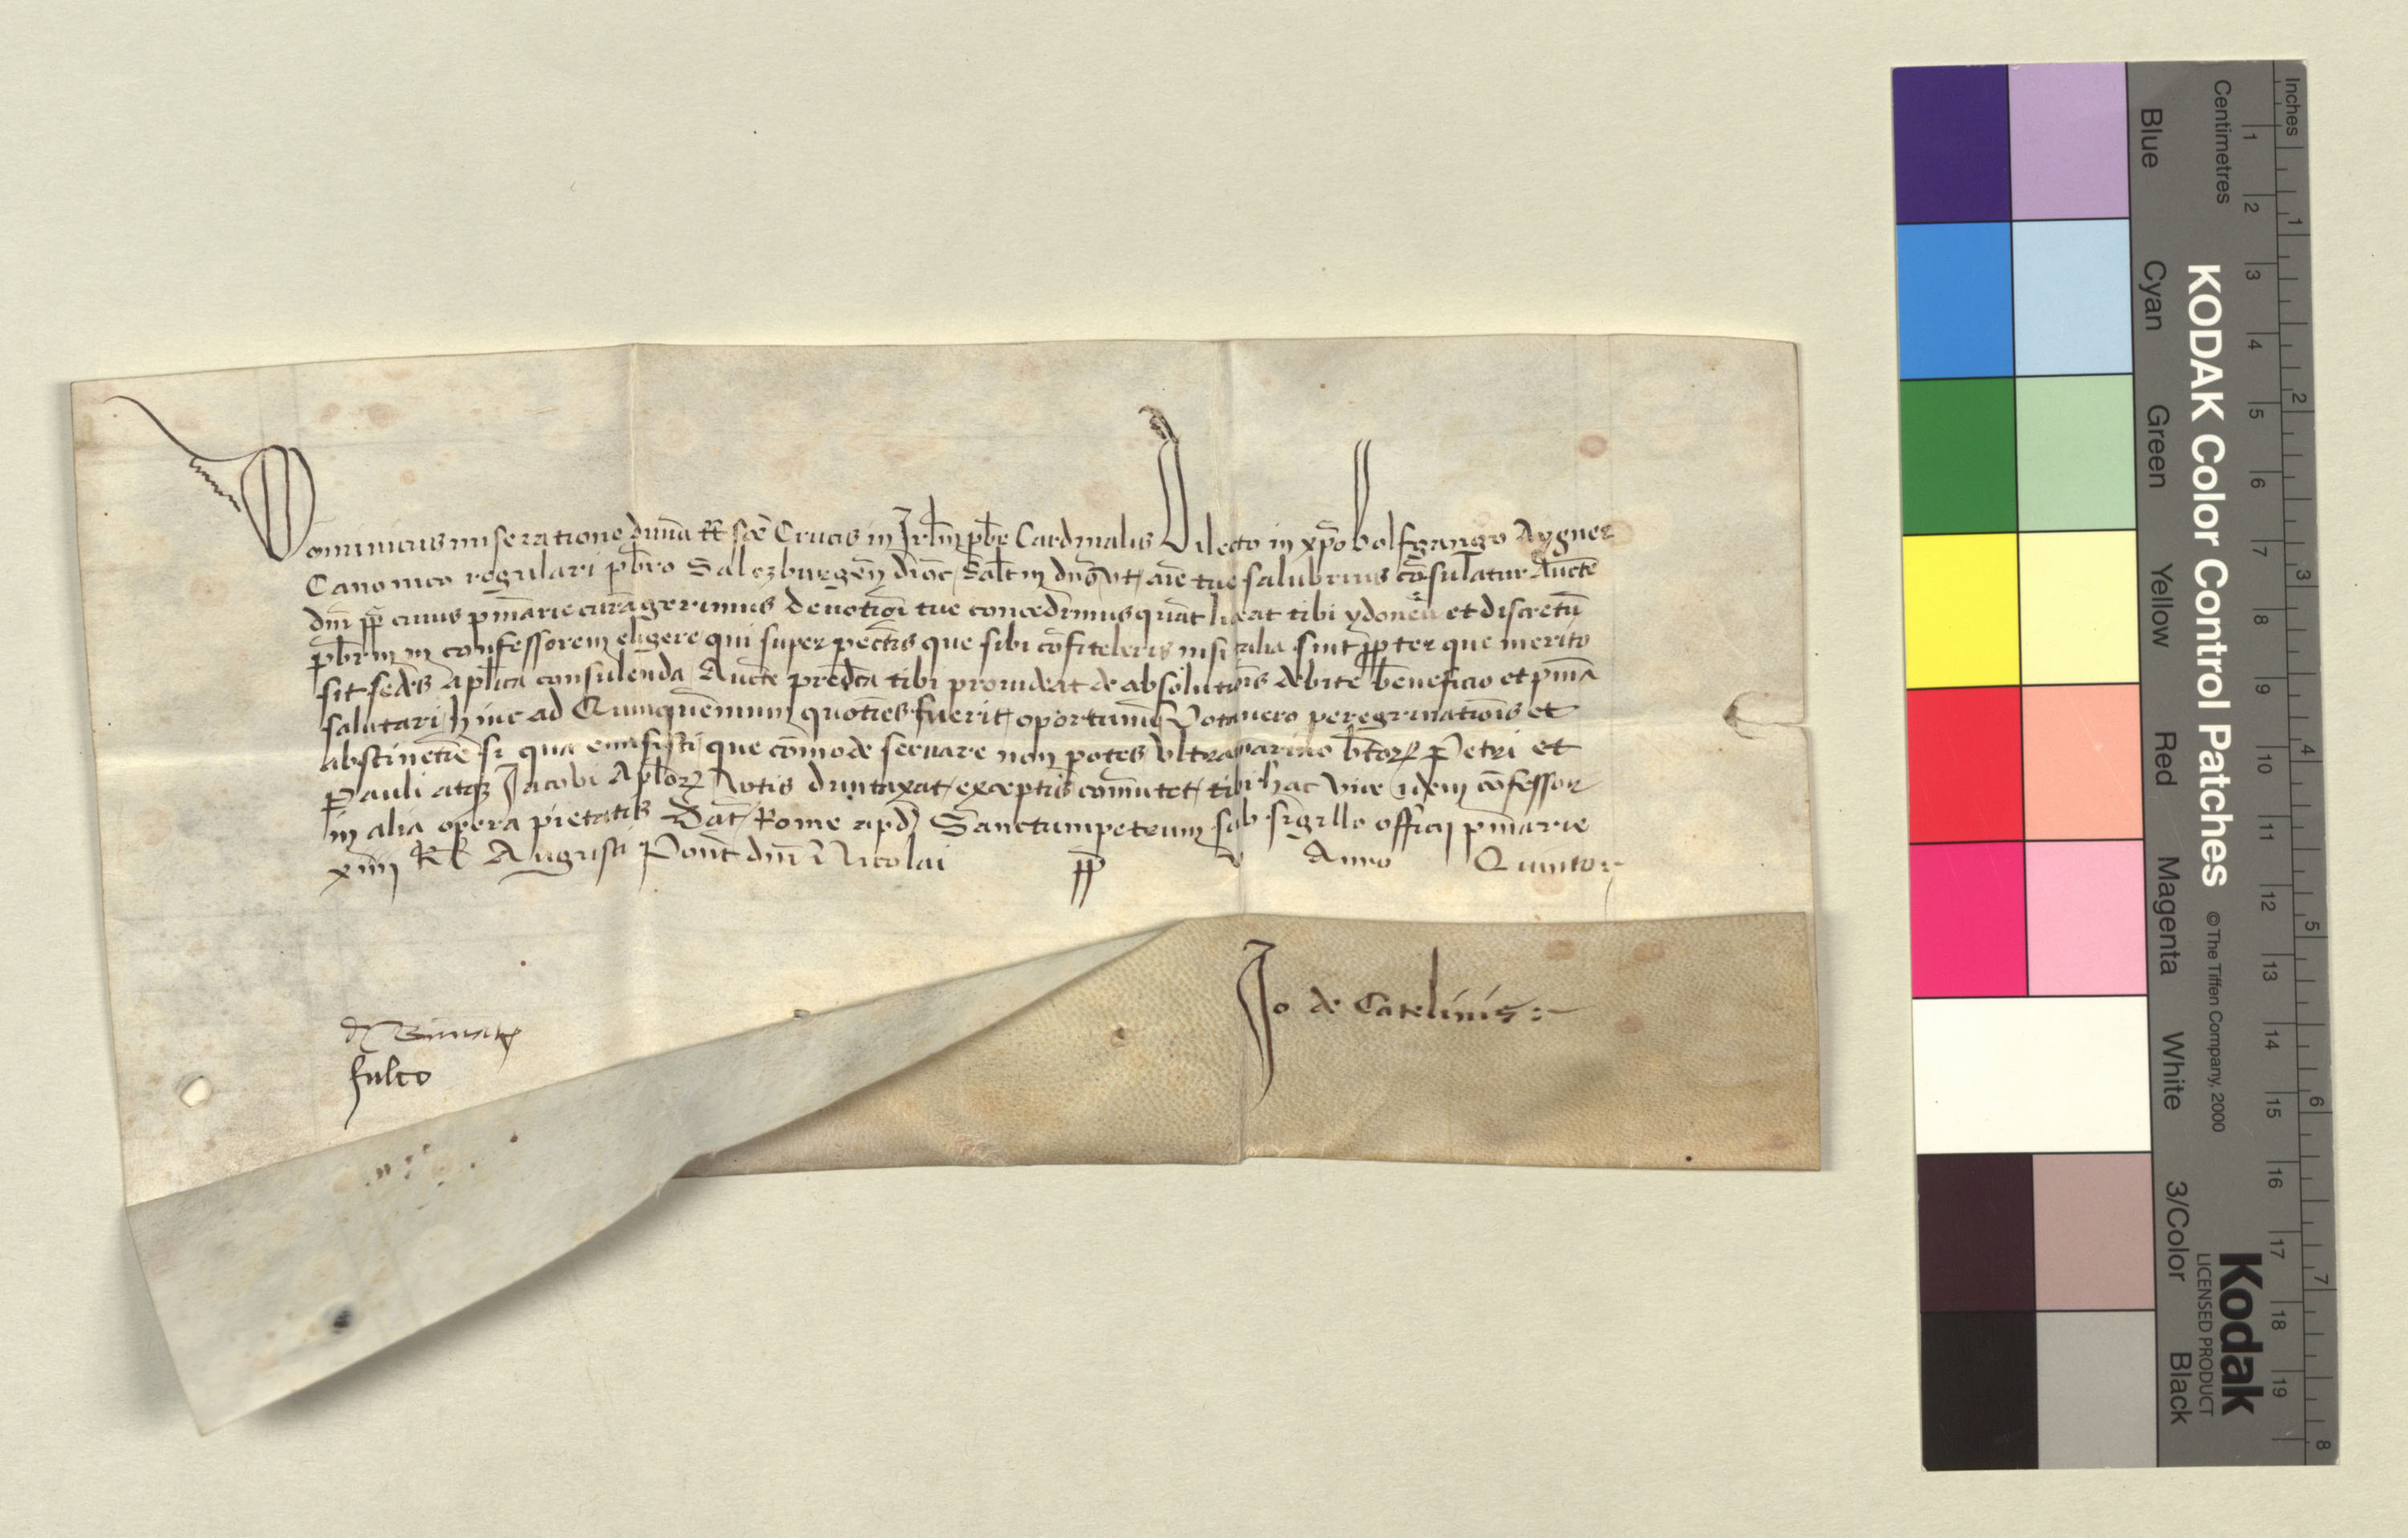 Dominicus miseratione diuina tt̄ sc̄e Crucis in Jrl̄m pb̄r Cardinalis Dilecto in xp̄o Volfgango Aygner
Canonico regulari pb̄ro Salczburgen̄ dioc̄ Sal̄t in dn̄o Vt aīe tue salubrius cōsulatur Aucte
dn̄i pp̄ cuius pn̄iarie curā gerimus deuotioī tue concedimus quat̄ liceat tibi ydoneū et discretū
pb̄rm in confessorem eligere qui super pecc̄tis que sibi cōfiteberis nisi talia sint pp̄ter que merito
sit sedes Apl̄ica consulenda Aucte pred̄ca tibi prouideat de absolutiōis debite b̄eneficio et pn̄ia
salutari hinc ad Quinquēnium quoties fuerit oportunū Vota uero peregrinatiōis et
abstinētie si qua emisisti que cōmode seruare non potes Vltramarino b̄tor̄ Petri et
Pauli atq̨ Jacobi Apl̄or̄ Votis duntaxat exceptis com̄utet tibi hac vice idem cōfessor
in alia opera pietatis Dat̄ Rome apd̄ Sanctumpetrum sub sigillo officij pn̄iarie
xiiij kl̄ Augusti Pont̄ dn̄i Nicolai pp̄ v Anno Quinto:-
Jo de Catelinis:-
fulco
Inches
Centimetres
1 2 3 4 5 6 7 8 9 10 11 12 13 14 15 16 17 18 19
1 2 3 4 5 6 7 8
KODAK Color Control Patches
© The Tiffen Company, 2000
Kodak
LICENSED PRODUCT
Blue
Cyan
Green
Yellow
Red
Magenta
White
3/Color
Black